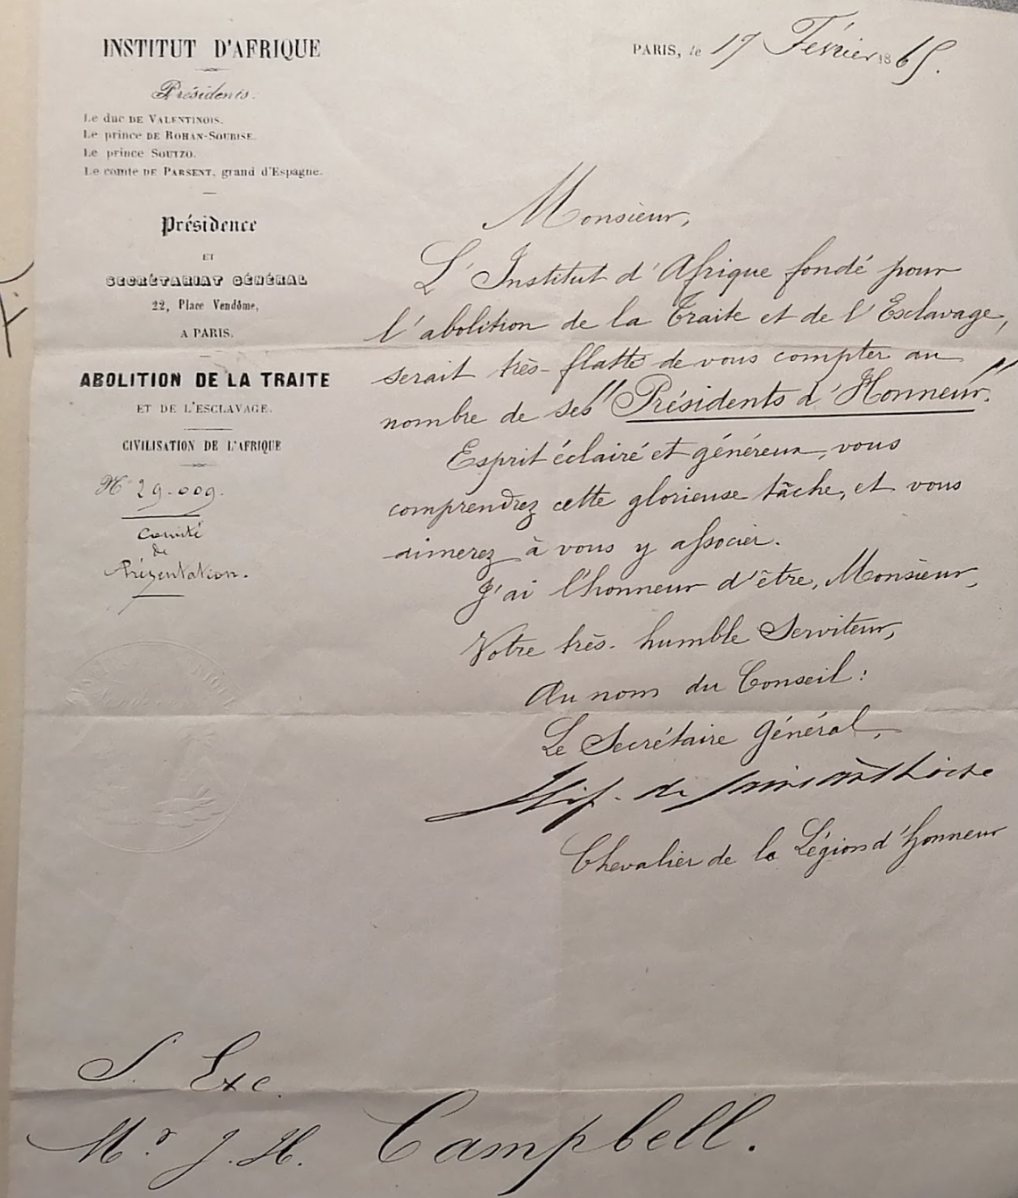 INSTITUT D'AFRIQUE
Présidents.
Le duc DE VALENTINOIS.
Le prince DE ROHAN-SOUBISE.
Le prince SOUTZO.
Le comte DE PARSENT, grand d'Espagne.
Présidence
ET
SECRÉTARIAT GÉNÉRAL
22, Place Vendôme,
A PARIS.
ABOLITION DE LA TRAITE
ET DE L'ESCLAVAGE.
CIVILISATION DE L'AFRIQUE
N° 29.009.
Comité
de
Présentation.
PARIS, le 17 Février 1865.
Monsieur,
L'Institut d'Afrique fondé pour
l'abolition de la Traite et de l'Esclavage,
serait très-flatté de vous compter au
nombre de ses "Présidents d'Honneur."
Esprit éclairé et généreux, vous
comprendrez cette glorieuse tâche, et vous
aimerez à vous y associer.
J'ai l'honneur d'être, Monsieur,
Votre très-humble Serviteur,
Au nom du Conseil:
Le Secrétaire Général,
de Saint Anthoine
Chevalier de la Légion d'honneur
S. Exc.
Mr. J. H. Campbell.